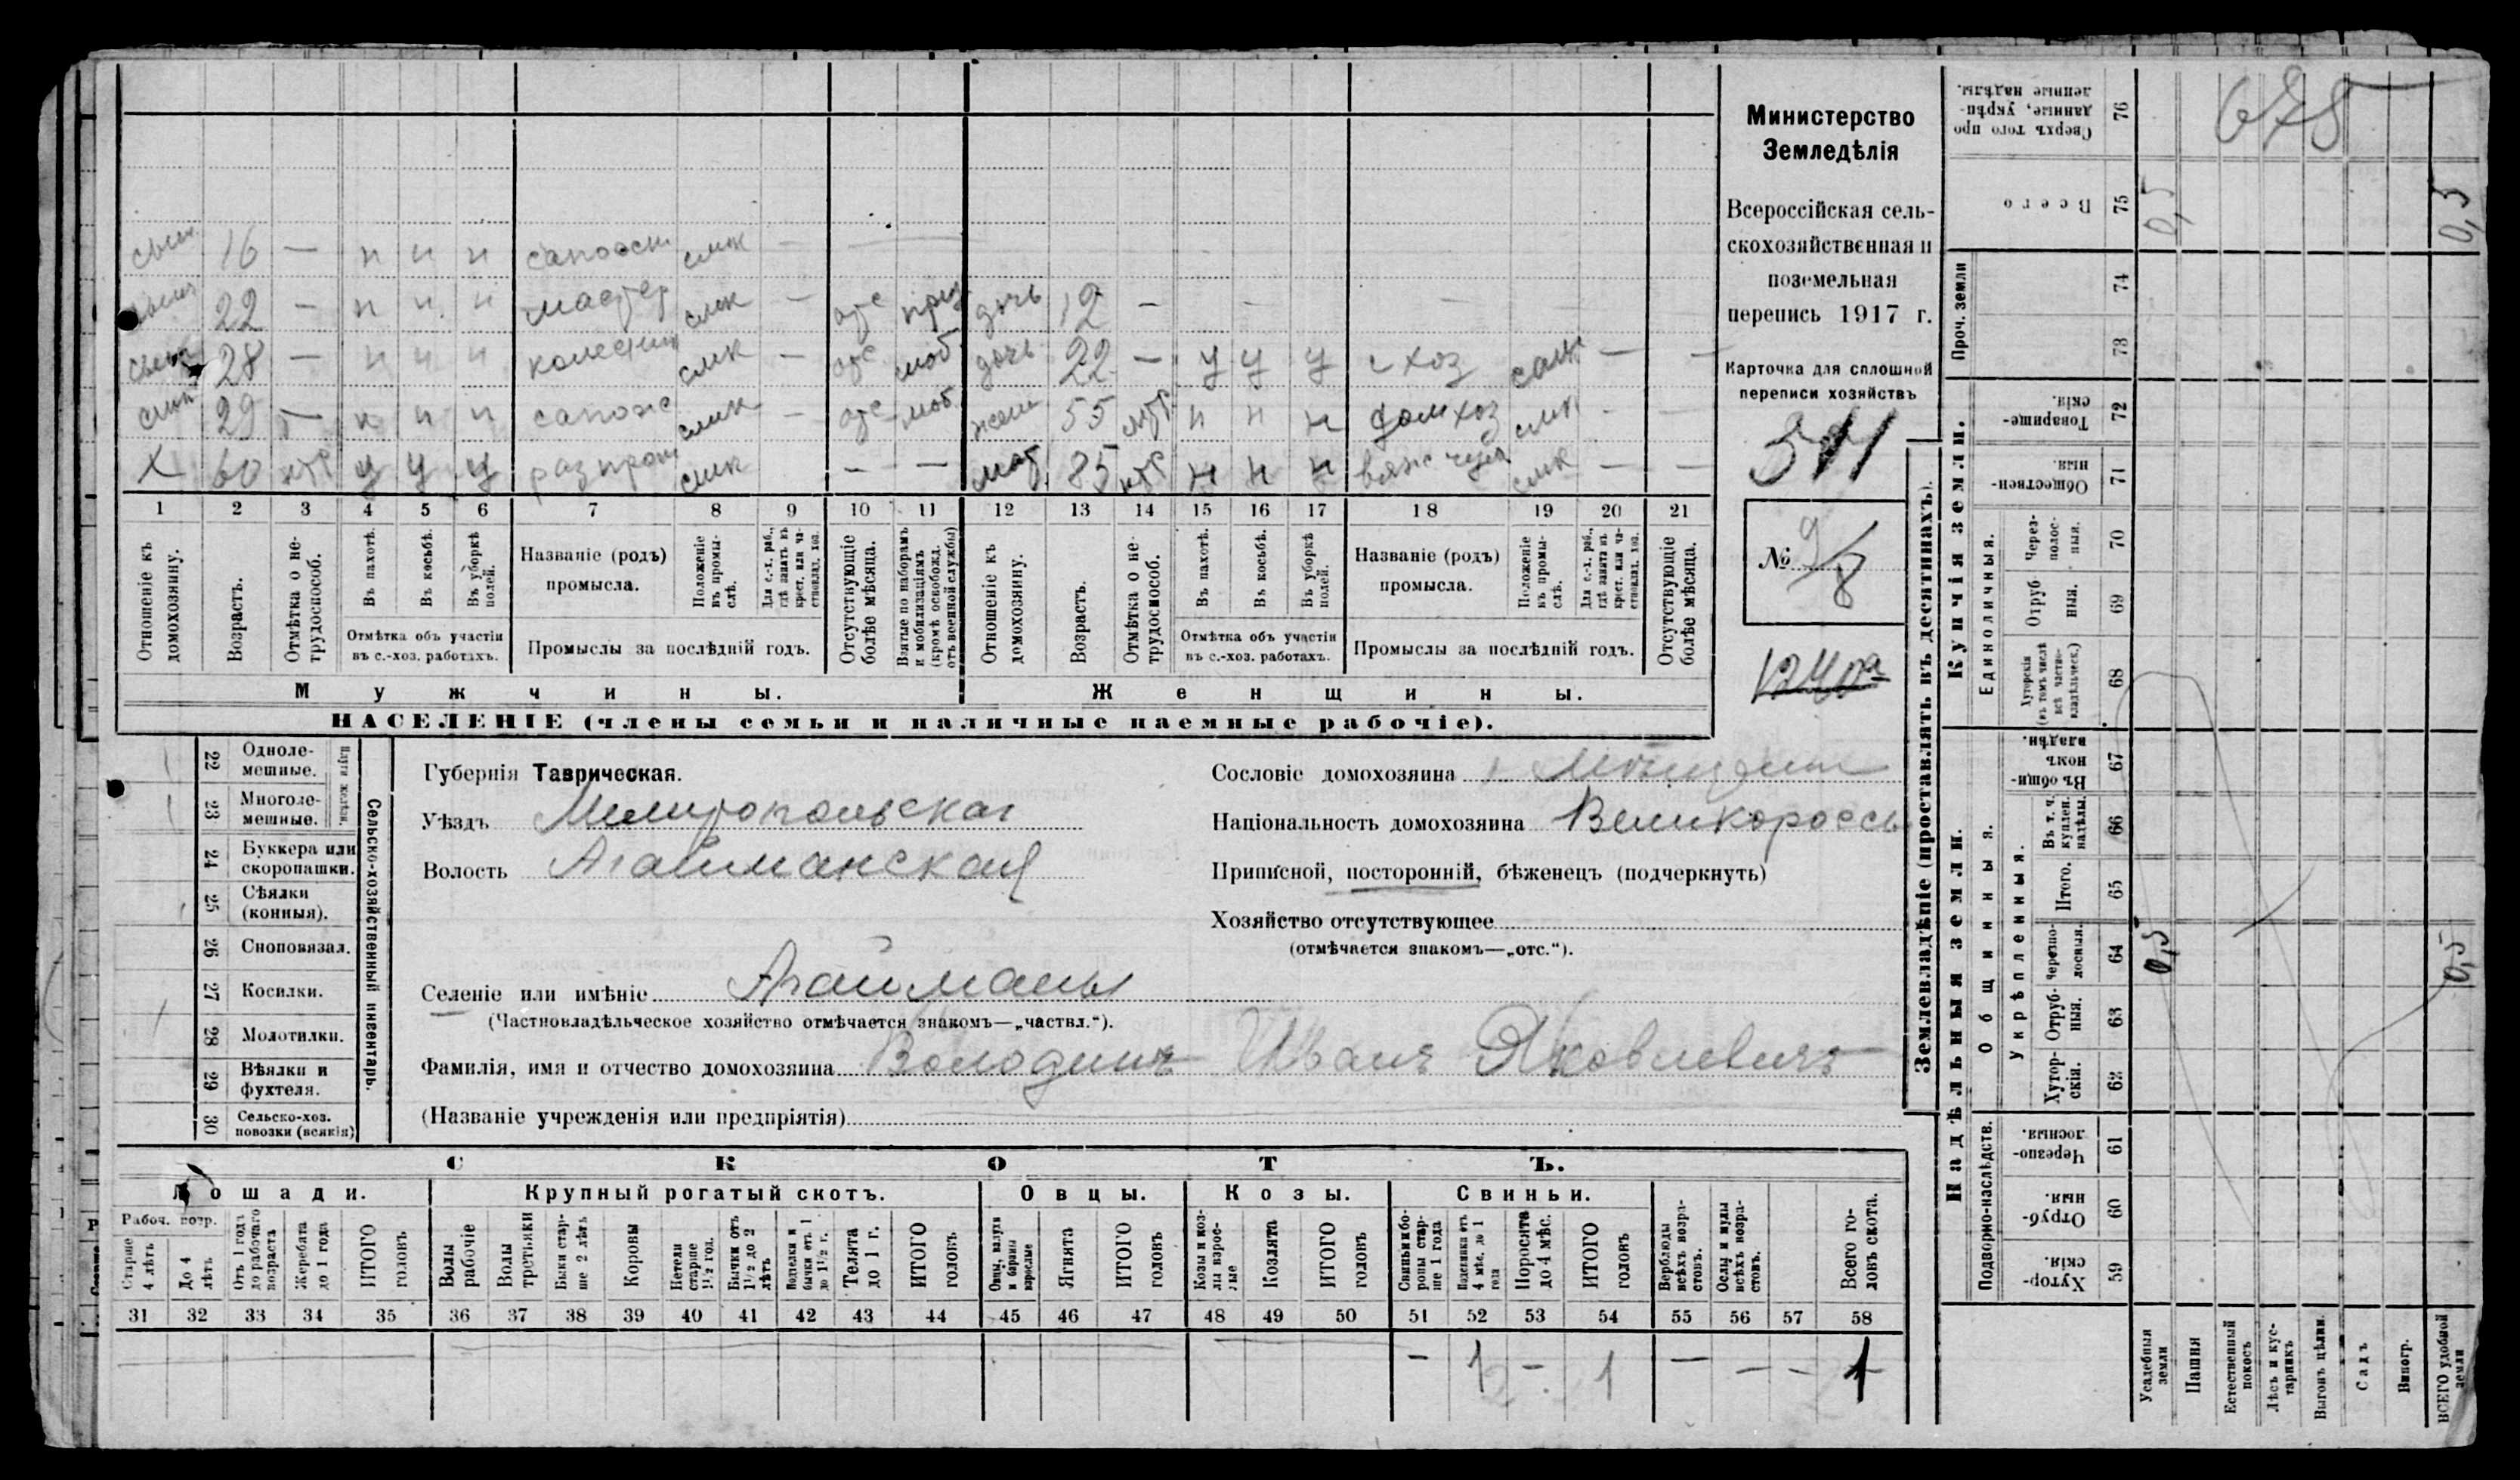 сын 16 — н н н сапожн смк —
сын 22 — н н н мастер смк — отс приз дочь 12 — — — —
сын 28 — н н н колесник смк — отс моб дочь 22 — у у у с хоз — —
сын 29 — н н н сапожн смк — отс моб жена 55 нтр н н н дом хоз смк — —
Х 60 нтр у у у смк — — мат. 85 нтр н н н смк — —
1 2 3 4 5 6 7 8 9 10 11 12 13 14 15 16 17 18 19 20 21
Отношеніе къ домохозяину.
Возрастъ.
Отмѣтка о не-
трудоспособ.
Въ пахотѣ.
Въ косьбѣ.
Въ уборкѣ полей.
Отмѣтка объ участіи
въ с.-хоз. работахъ.
Названіе (родъ)
промысла.
Положеніе въ промы-
слѣ.
Для с.-х. раб.,
гдѣ занятъ въ
крест. или ча-
стновлад. хоз.
Промыслы за послѣдній годъ.
Отсутствующіе
болѣе мѣсяца.
Взятые по наборамъ
и мобилизаціямъ
(кромѣ освобожд.
отъ военной службы)
Отношеніе къ
домохозяину.
Возрастъ.
Отмѣтка о не-
трудоспособ.
Въ пахотѣ.
Въ косьбѣ.
Въ уборкѣ
полей.
Отмѣтка объ участіи
въ с.-хоз. работахъ.
Названіе (родъ)
промысла.
Положеніе
въ промы-
слѣ.
Для с.-х. раб.,
гдѣ занята въ
крест. или ча-
стновлад. хоз.
Промыслы за послѣдній годъ.
Отсутствующіе
болѣе мѣсяца.
Мужчины.
Женщины.
НАСЕЛЕНІЕ (члены семьи и наличные наемные рабочіе).
Министерство
Земледѣлія
Всероссійская сель-
скохозяйственная и
поземельная
перепись 1917 г.
Карточка для сплошной
переписи хозяйствъ
№ 9/8
22 Одноле-
мешные.
23 Многоле-
мешные.
Плуги желѣзн.
24 Буккера или
скоропашки.
25 Сѣялки
(конныя).
26 Сноповязал.
27 Косилки.
28 Молотилки.
29 Вѣялки и
фухтеля.
30 Сельско-хоз.
повозки (всякія)
Сельско-хозяйственный инвентарь.
Губернія Таврическая.
Уѣздъ Мелитопольская
Волость Агайманская
Селеніе или имѣніе Агайманы
(Частновладѣльческое хозяйство отмѣчается знакомъ—„частвл.“).
Фамилія, имя и отчество домохозяина Володинъ Иванъ Яковлевичъ
(Названіе учрежденія или предпріятія)
Сословіе домохозяина Мѣщанин
Національность домохозяина Великороссъ
Приписной, посторонній, бѣженецъ (подчеркнуть)
Хозяйство отсутствующее
(отмѣчается знакомъ—„отс.“).
СКОТЪ.
Лошади.
Рабоч. возр.
Старше
4 лѣтъ
До 4
лѣтъ
Отъ 1 года
до рабочаго
возраста
Жеребята
до 1 года
ИТОГО
головъ
Крупный рогатый скотъ.
Волы
рабочіе
Волы
третьяки
Быки стар-
ше 2 лѣтъ
Коровы
Нетели
старше
1½ год.
Бычки отъ
1½ до 2
лѣтъ
Телки и
бычки отъ 1
до 1½ г.
Телята
до 1 г.
ИТОГО
головъ
Овцы.
Овцы, валухи
и бараны
взрослые
Ягнята
ИТОГО
головъ
Козы.
Козы и коз-
лы взрос-
лые
Козлята
ИТОГО
головъ
Свиньи.
Свиньи и бо-
ровы стар-
ше 1 года
Подсвинки отъ
4 мѣс. до 1
года
Поросята
до 4 мѣс.
ИТОГО
головъ
Верблюды
всѣхъ возра-
стовъ.
Ослы и мулы
всѣхъ возра-
стовъ.
Всего го-
ловъ скота.
31 32 33 34 35 36 37 38 39 40 41 42 43 44 45 46 47 48 49 50 51 52 53 54 55 56 57 58
— 1 — 1 — — — 1
Землевладѣніе (проставлять въ десятинахъ).
Купчія земли.
Надѣльныя земли.
678
76 Сверхъ того про
данные, укрѣп-
ленные надѣлы.
75 Всего 0,5 0,5
Проч. земли
74
73
72 Товарище-
скія.
71 Обществен-
ныя.
Единоличныя.
70 Через-
полос-
ныя.
69 Отруб
ныя.
68 Хуторскія
(въ томъ числѣ
всѣ частно-
владѣльческ.)
Общинныя.
67 Въ общи-
номъ
владѣн.
Укрѣпленныя.
66 Въ т. ч.
куплен.
надѣлы.
65 Итого.
64 Черезпо-
лосныя. 0,5 0,5
63 Отруб-
ныя.
62 Хутор-
скія.
Подворно-наслѣдств.
61 Черезпо-
лосныя.
60 Отруб-
ныя.
59 Хутор-
скія.
Усадебныя
земли
Пашня
Естественный
покосъ
Лѣсъ и кус-
тарникъ
Выгонъ цѣлин.
Садъ
Виногр.
ВСЕГО удобной
земли